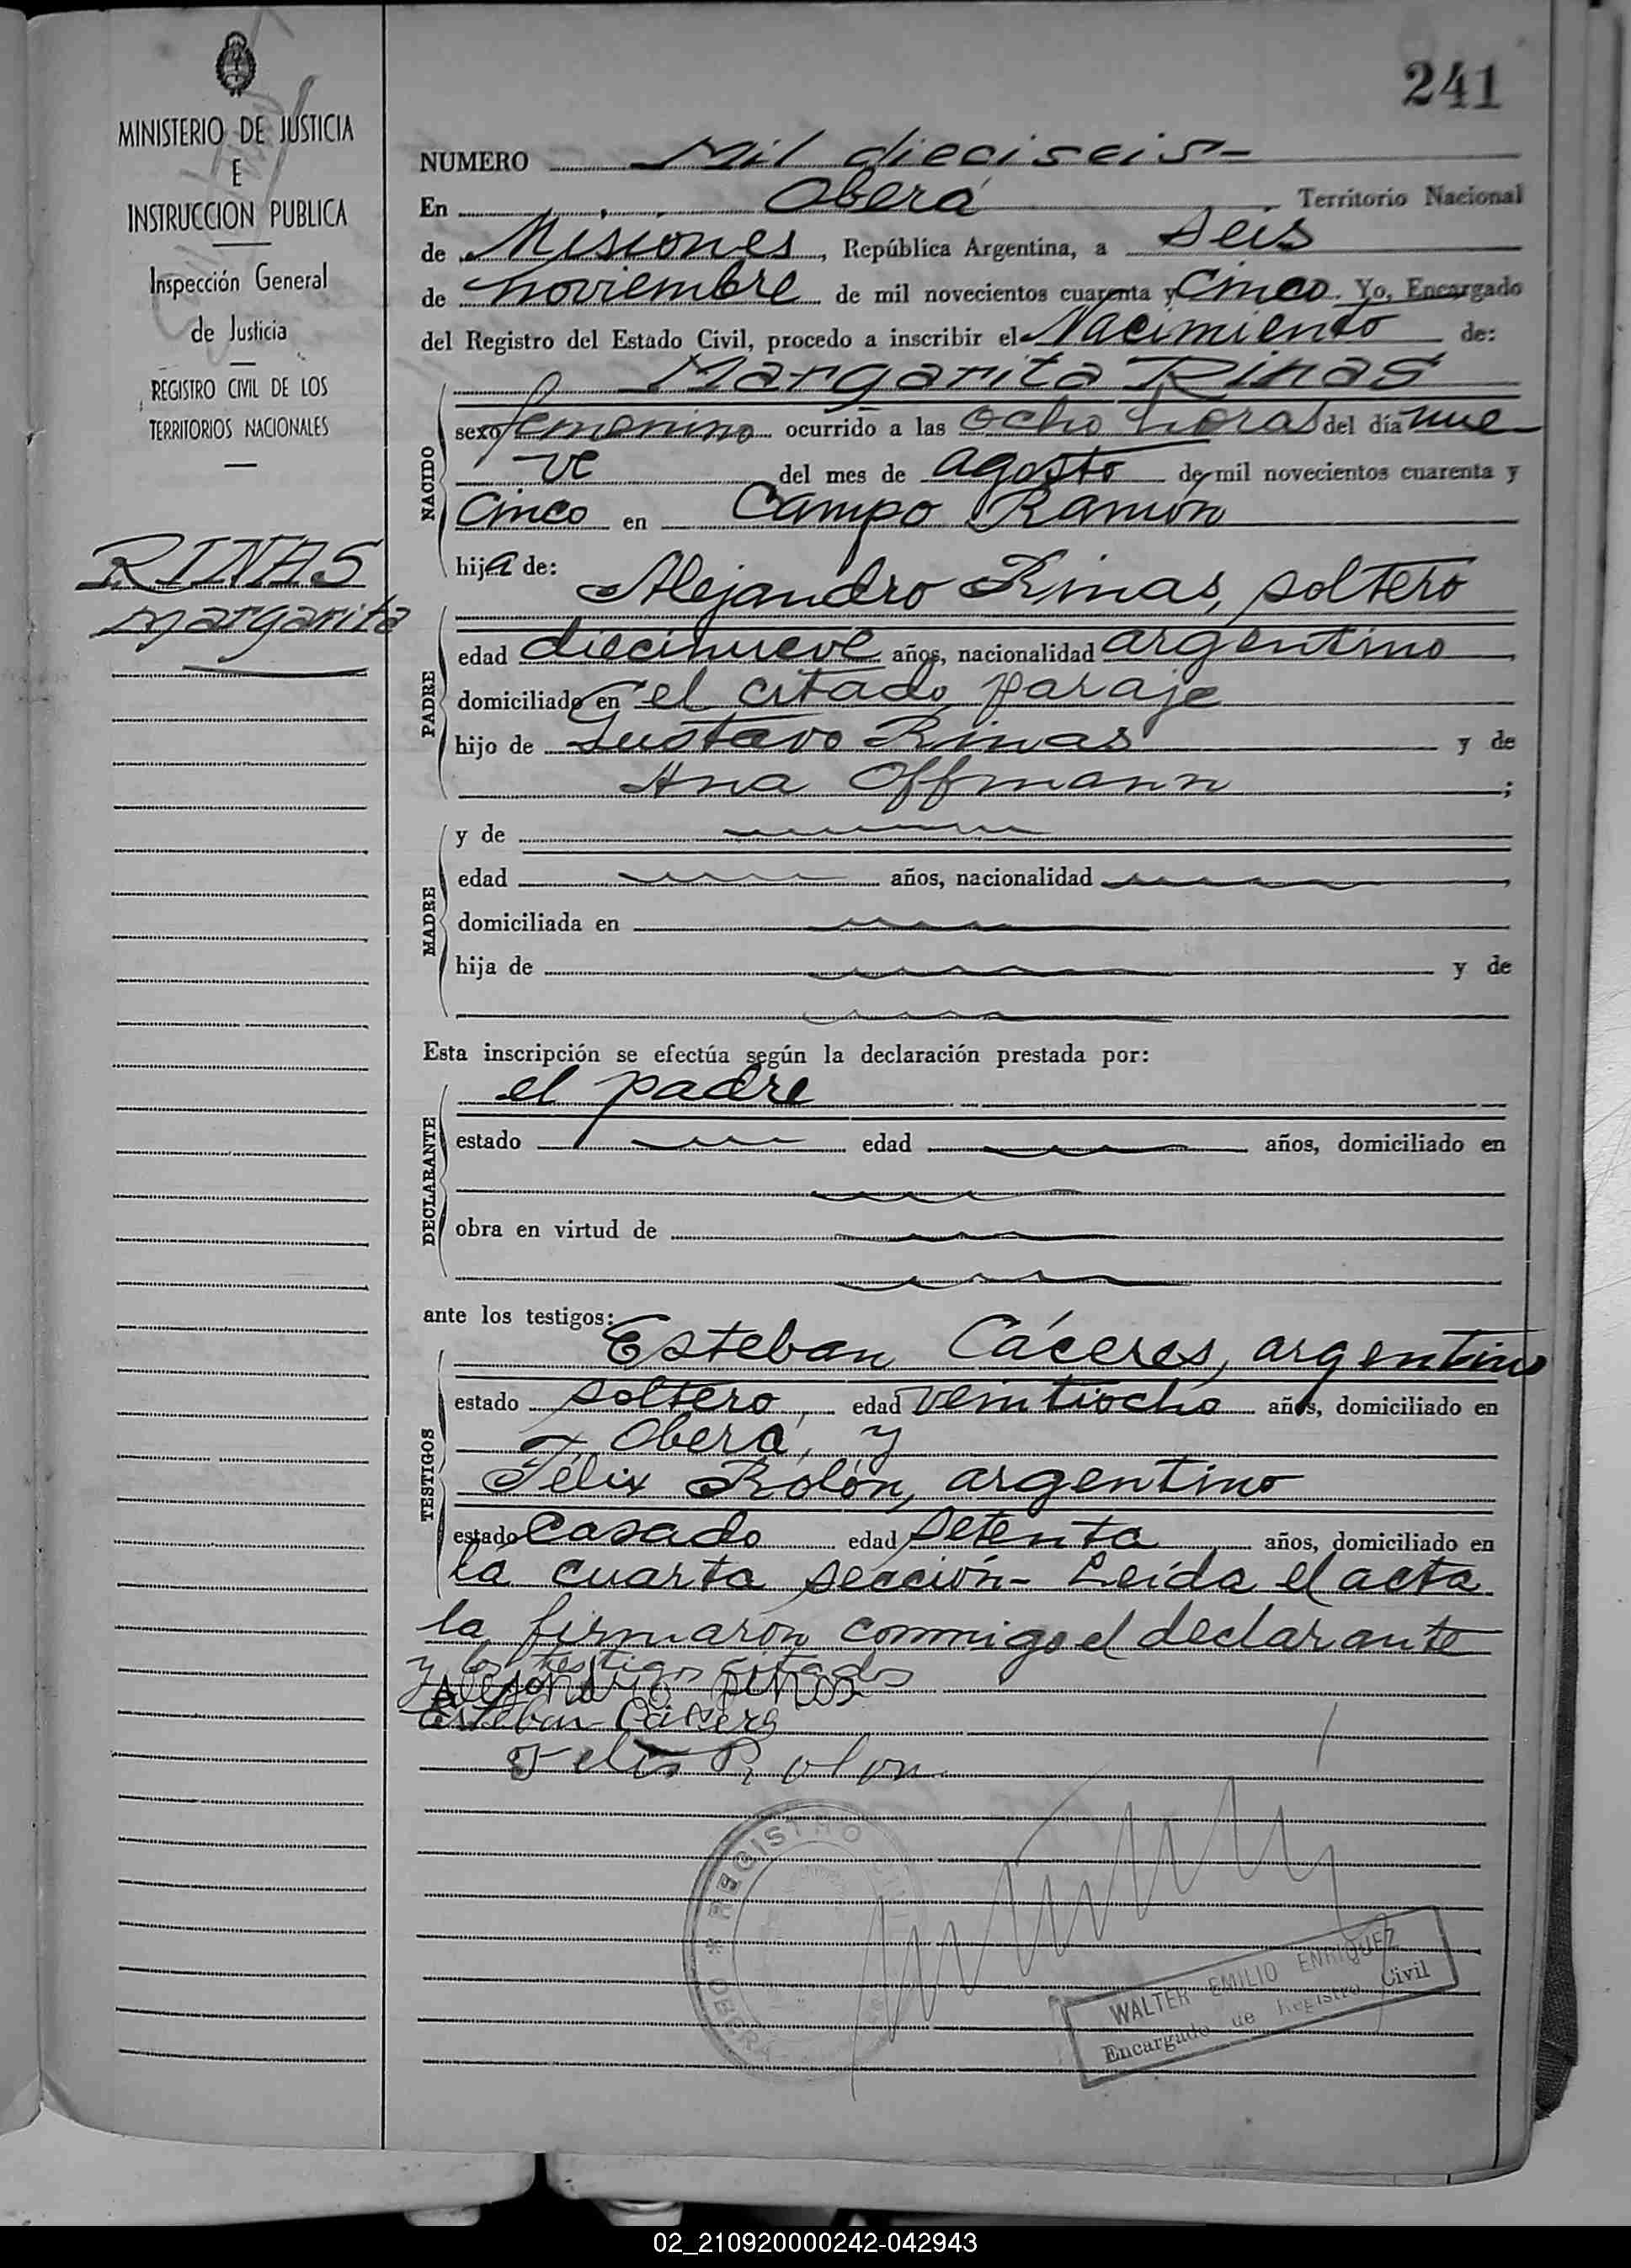 241
MINISTERIO DE JUSTICIA
E
INSTRUCCION PUBLICA
Inspección General
de Justicia
REGISTRO CIVIL DE LOS
TERRITORIOS NACIONALES
RINAS
margarita
NUMERO Mil dieciseis-
En Oberá Territorio Nacional
de Misiones, República Argentina, a Seis
de noviembre de mil novecientos cuarenta y Cinco. Yo, Encargado
del Registro del Estado Civil, procedo a inscribir el Nacimiento de:
Margarita Rinas
NACIDO
sexo femenino ocurrido a las ocho horas del día nue
ve del mes de agosto de mil novecientos cuarenta y
Cinco en Campo Ramón
hija de:
Alejandro Rinas, soltero
PADRE
edad diecinueve años, nacionalidad argentino
domiciliado en el citado paraje
hijo de Gustavo Rinas y de
Ana Offmann ;
MADRE
y de
edad años, nacionalidad
domiciliada en
hija de y de
Esta inscripción se efectúa según la declaración prestada por:
el padre
DECLARANTE
estado edad años, domiciliado en
obra en virtud de
ante los testigos:
Esteban Cáceres, argentino
TESTIGOS
estado soltero, edad veintiocho años, domiciliado en
Oberá, y
Félix Rolón, argentino
estado Casado edad setenta años, domiciliado en
la cuarta sección- Leída el acta
la firmaron conmigo el declarante
y los testigos citados
Alejandro Rinas
Esteban Caseres
Felix Rolon
REGISTRO CIVIL
* OBERA
WALTER EMILIO ENRIQUEZ
Encargado de Registro Civil
02_210920000242-042943